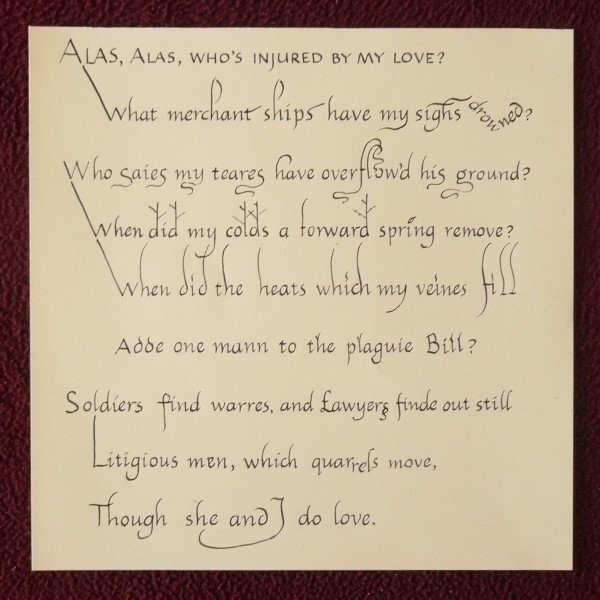 ALAS, ALAS, WHO'S INJURED BY MY LOVE?
What merchant ships have my sighs drowned?
Who saies my teares have overflow'd his ground?
When did my colds a forward spring remove?
When did the heats which my veines fill
Adde one mann to the plaguie Bill?
Soldiers find warres, and Lawyers finde out still
Litigious men, which quarrels move,
Though she and I do love.